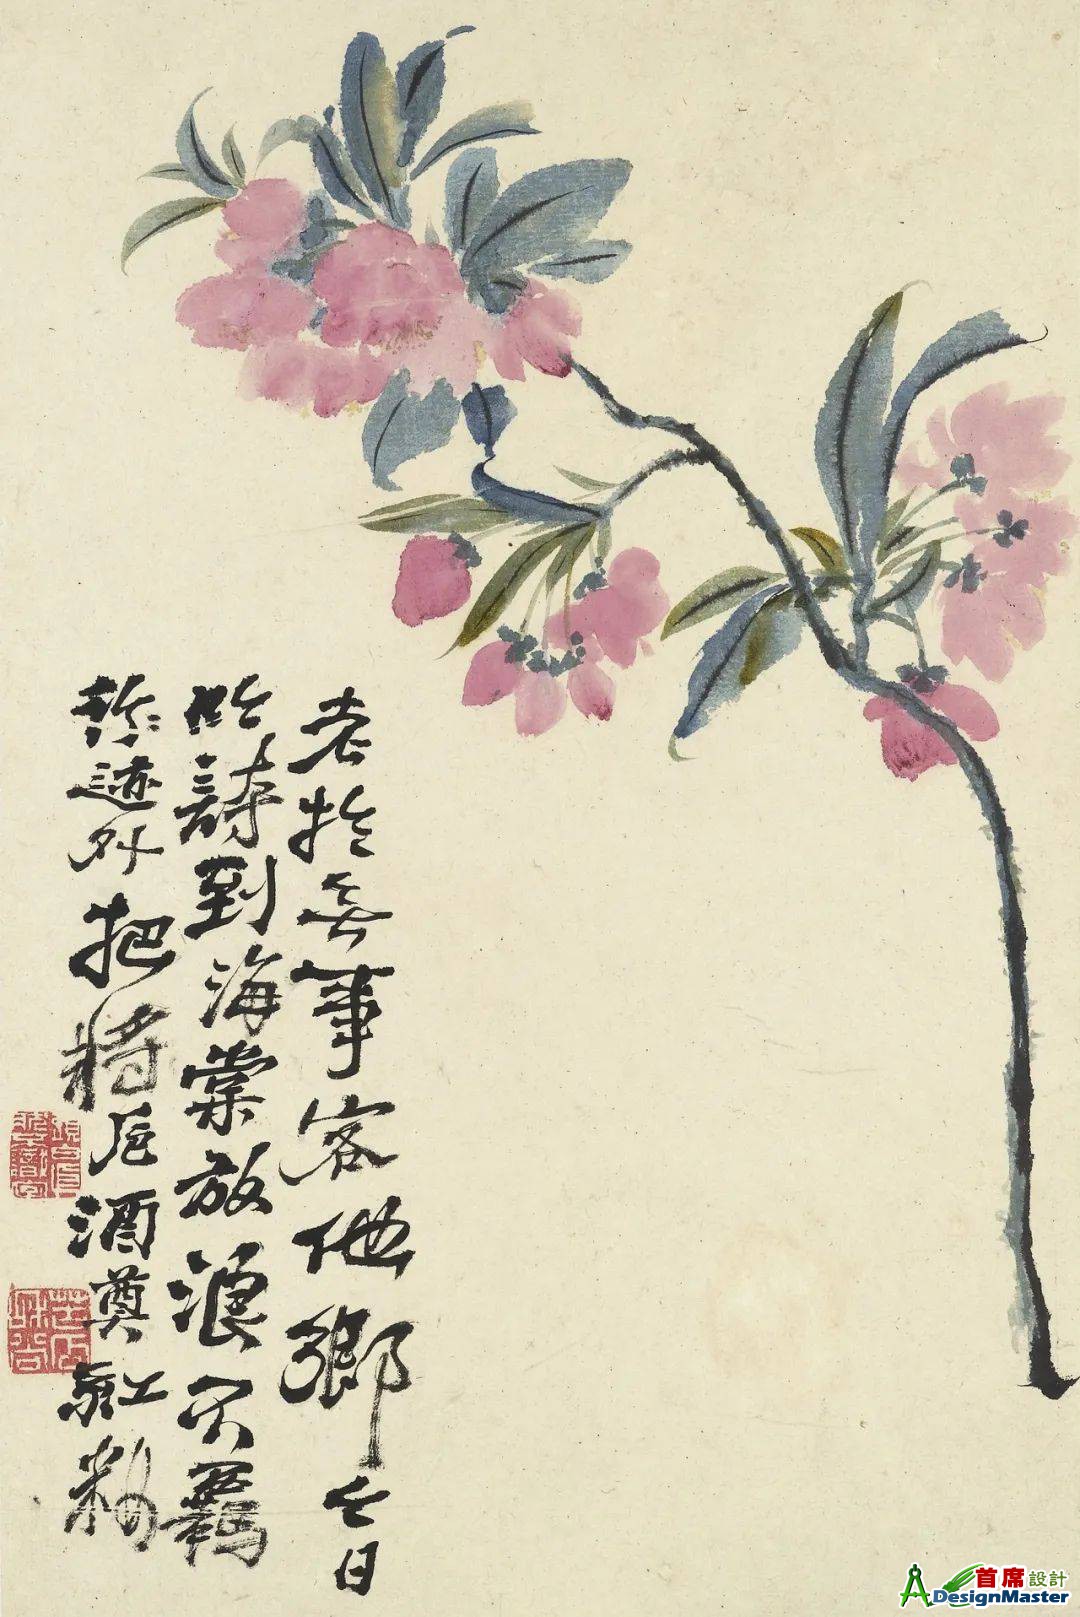 老於無事客他鄉今日
吟詩到海棠放浪不羈
形迹外把將卮酒奠紅粧
苦瓜和尚
首席設計
DesignMaster